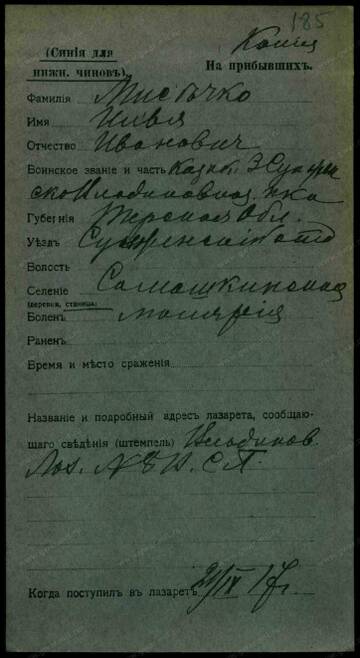 185
Копия
(Синія для
нижн. чиновъ).
На прибывшихъ.
Фамилія
Имя Илья
Отчество Ивановичъ
Воинское званіе и часть Казакъ 3 Сунжен
ско Владикавказ. пка
Губернія Терская Обл.
Уѣздъ Сунженскій отд
Волость
Селеніе Самашкинская
(деревня, станица)
Боленъ малярія
Раненъ
Время и мѣсто сраженія
Названіе и подробный адресъ лазарета, сообщаю-
щаго свѣдѣнія (штемпель) Владикав.
Лаз. № 8 И. С. П.
Когда поступилъ въ лазаретъ 21/IX 17 г.